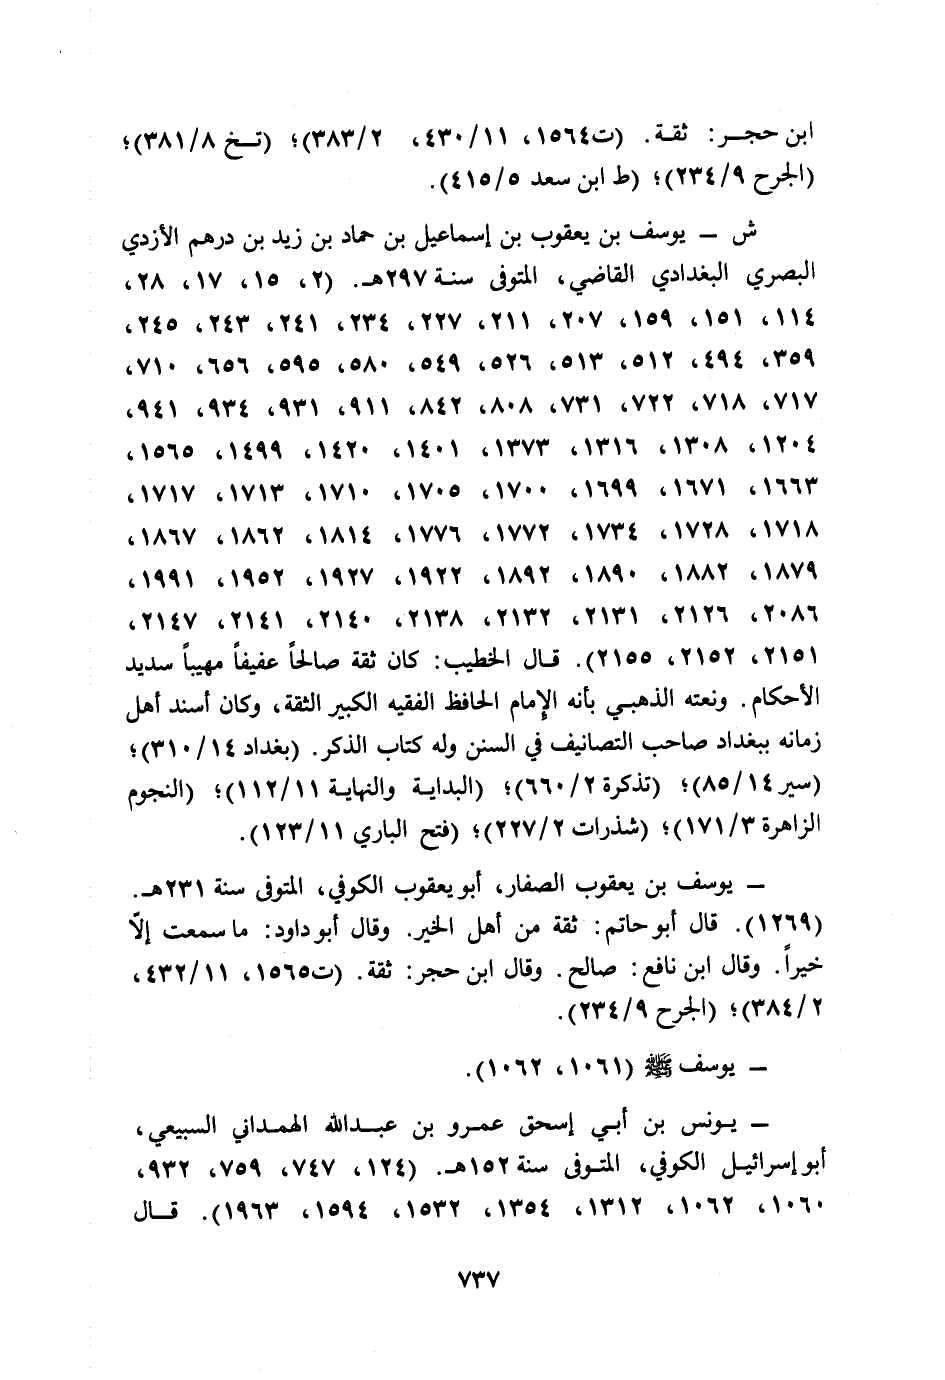 ابن حجر: ثقة. (ت١٥٦٤، ٤٣٠/١١، ٣٨٣/٢)؛ (تخ ٣٨١/٨)؛
(الجرح ٢٣٤/٩)؛ (ط ابن سعد ٤١٥/٥).
ش — يوسف بن يعقوب بن إسماعيل بن حماد بن زيد بن درهم الأزدي
البصري البغدادي القاضي، المتوفى سنة ٢٩٧هـ. (٢، ١٥، ١٧، ٢٨،
١١٤، ١٥١، ١٥٩، ٢٠٧، ٢١١، ٢٢٧، ٢٣٤، ٢٤١، ٢٤٣، ٢٤٥،
٣٥٩، ٤٩٤، ٥١٢، ٥١٣، ٥٢٦، ٥٤٩، ٥٨٠، ٥٩٥، ٦٥٦، ٧١٠،
٧١٧، ٧١٨، ٧٢٢، ٧٣١، ٨٠٨، ٨٤٢، ٩١١، ٩٣١، ٩٣٤، ٩٤١،
١٢٠٤، ١٣٠٨، ١٣١٦، ١٣٧٣، ١٤٠١، ١٤٢٠، ١٤٩٩، ١٥٦٥،
١٦٦٣، ١٦٧١، ١٦٩٩، ١٧٠٠، ١٧٠٥، ١٧١٠، ١٧١٣، ١٧١٧،
١٧١٨، ١٧٢٨، ١٧٣٤، ١٧٧٢، ١٧٧٦، ١٨١٤، ١٨٦٢، ١٨٦٧،
١٨٧٩، ١٨٨٢، ١٨٩٠، ١٨٩٢، ١٩٢٢، ١٩٢٧، ١٩٥٢، ١٩٩١،
٢٠٨٦، ٢١٢٦، ٢١٣١، ٢١٣٢، ٢١٣٨، ٢١٤٠، ٢١٤١، ٢١٤٧،
٢١٥١، ٢١٥٢، ٢١٥٥). قال الخطيب: كان ثقة صالحاً عفيفاً مهيباً سديد
الأحكام. ونعته الذهبي بأنه الإمام الحافظ الفقيه الكبير الثقة، وكان أسند أهل
زمانه ببغداد صاحب التصانيف في السنن وله كتاب الذكر. (بغداد ٣١٠/١٤)؛
(سير ٨٥/١٤)؛ (تذكرة ٦٦٠/٢)؛ (البداية والنهاية ١١٢/١١)؛ (النجوم
الزاهرة ١٧١/٣)؛ (شذرات ٢٢٧/٢)؛ (فتح الباري ١٢٣/١١).
— يوسف بن يعقوب الصفار، أبو يعقوب الكوفي، المتوفى سنة ٢٣١هـ.
(١٢٦٩). قال أبو حاتم: ثقة من أهل الخير. وقال أبو داود: ما سمعت إلّا
خيراً. وقال ابن نافع: صالح. وقال ابن حجر: ثقة. (ت١٥٦٥، ٤٣٢/١١،
٣٨٤/٢)؛ (الجرح ٢٣٤/٩).
— يوسف ﷺ (١٠٦١، ١٠٦٢).
— يونس بن أبي إسحق عمرو بن عبدالله الهمداني السبيعي،
أبو إسرائيل الكوفي، المتوفى سنة ١٥٢هـ. (١٢٤، ٧٤٧، ٧٥٩، ٩٣٢،
١٠٦٠، ١٠٦٢، ١٣١٢، ١٣٥٤، ١٥٣٢، ١٥٩٤، ١٩٦٣). قال
٧٣٧